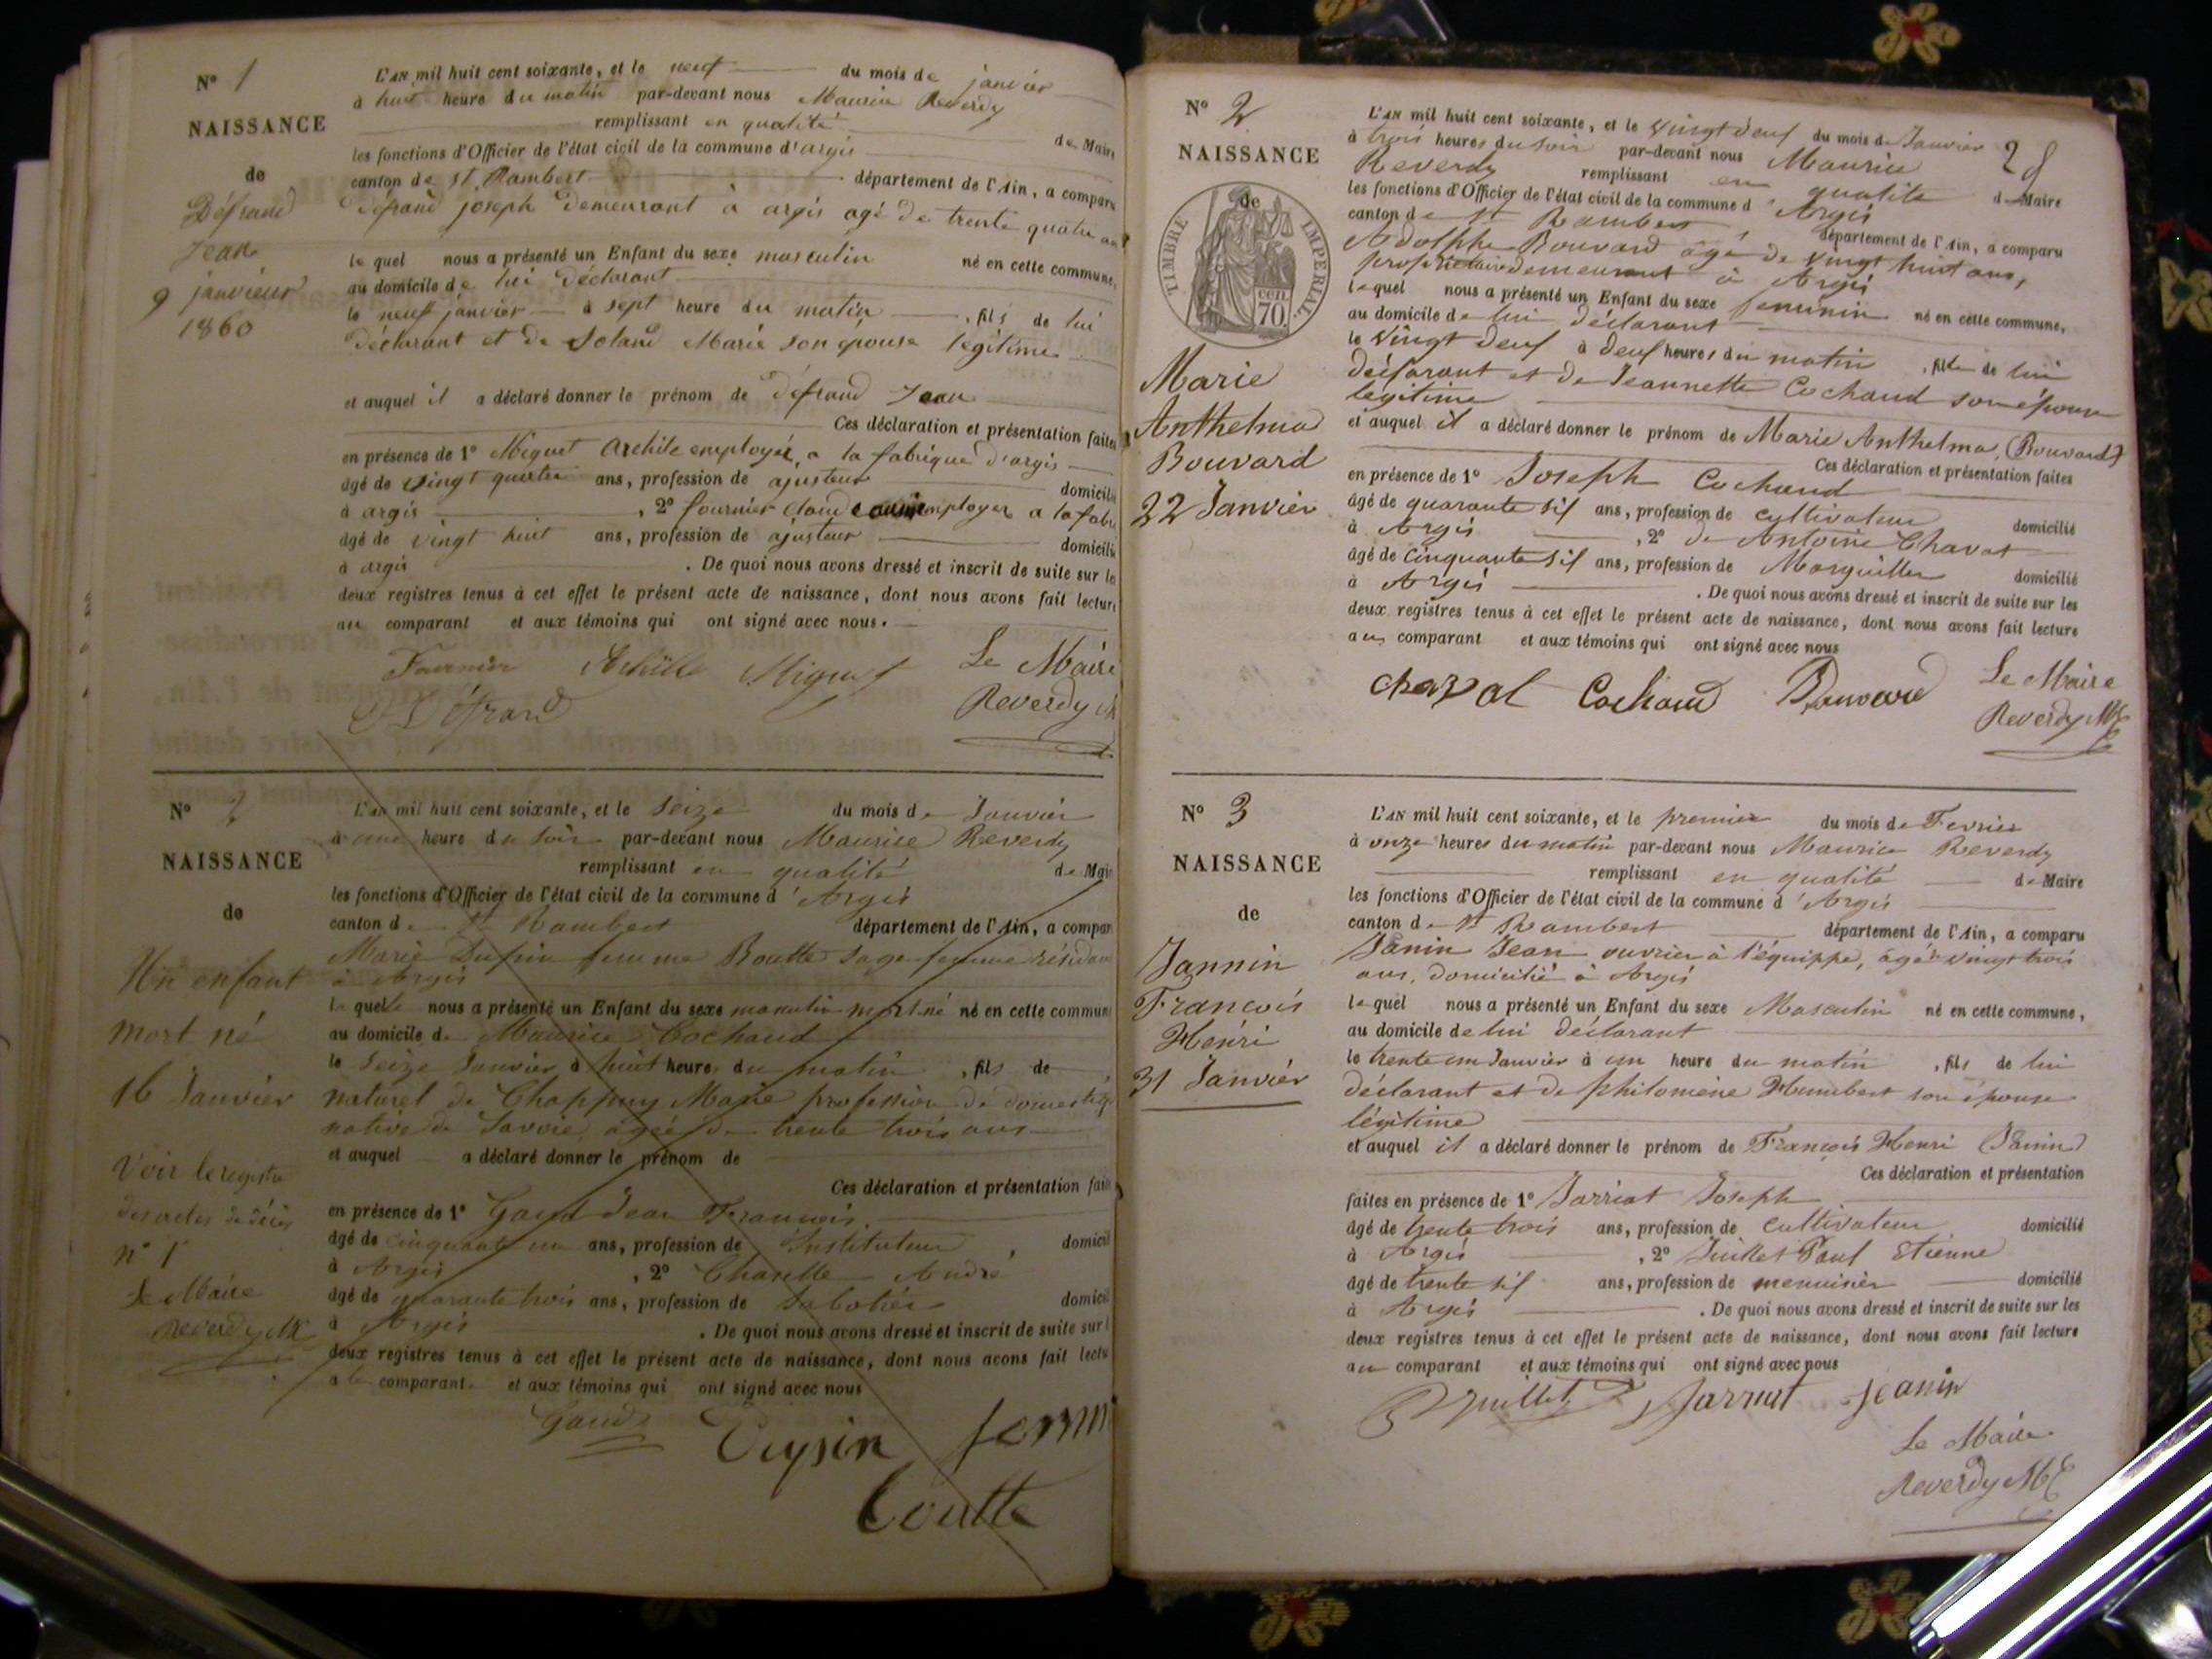 N° 1
NAISSANCE
de
Défrand
Jean
9 janvieur
1860
L'AN mil huit cent soixante, et le neuf du mois de janvier
à huit heure du matin par-devant nous Maurice Reverdy
remplissant en qualité de Maire
les fonctions d'Officier de l'état civil de la commune d'argis
canton de St Rambert département de l'Ain, a comparu
Défrand joseph demeurant à argis agé de trente quatre ans
le quel nous a présenté un Enfant du sexe masculin né en cette commune,
au domicile de lui déclarant
le neuf janvier à sept heure du matin, fils de lui
déclarant et de Soland Marie son épouse légitime
et auquel il a déclaré donner le prénom de défrand Jean
Ces déclaration et présentation faites
en présence de 1° Miguet Archile employé, a la fabrique d'argis
âgé de vingt quatre ans, profession de ajusteur domicilié
à argis, 2° fournier claude employer a la fabri
âgé de vingt huit ans, profession de ajusteur domicilié
à argis. De quoi nous avons dressé et inscrit de suite sur les
deux registres tenus à cet effet le présent acte de naissance, dont nous avons fait lecture
au comparant et aux témoins qui ont signé avec nous.
Fournier Achille Miguet Le Maire
Défrand Reverdy M
N° 2
NAISSANCE
de
Un enfant
mort né
16 Janvier
Voir le registre
des actes de décès
n° 1
Le Maire
Reverdy M
L'AN mil huit cent soixante, et le seize du mois de Janvier
à une heure du soir par-devant nous Maurice Reverdy
remplissant en qualité de Maire
les fonctions d'Officier de l'état civil de la commune d'Argis
canton de St Rambert département de l'Ain, a comparu
Marie femme Boutte sage femme résidant
à Argis
la quelle nous a présenté un Enfant du sexe masculin mort-né né en cette commune
au domicile de Maurice Cochand
le seize Janvier à huit heure du matin, fils de
naturel de Chappuy Marie profession de domestique
native de Savoie, agée de trente trois ans
et auquel a déclaré donner le prénom de
Ces déclaration et présentation faites
en présence de 1° Gaud Jean François
âgé de cinquante un ans, profession de Instituteur, domicilié
à Argis, 2° André
âgé de quarante trois ans, profession de Sabotier domicilié
à Argis. De quoi nous avons dressé et inscrit de suite sur l
deux registres tenus à cet effet le présent acte de naissance, dont nous avons fait lectu
a la comparant et aux témoins qui ont signé avec nous
Gaud
Boutte
N° 2
NAISSANCE
de
TIMBRE IMPERIAL
CEN. 70
Marie
Anthelma
Bouvard
22 Janvier
28
L'AN mil huit cent soixante, et le vingt deux du mois de Janvier
à trois heures du soir par-devant nous Maurice
Reverdy remplissant en qualité de Maire
les fonctions d'Officier de l'état civil de la commune d'Argis
canton de St Rambert département de l'Ain, a comparu
Adolphe Bouvard âgé de vingt huit ans,
propriétaire demeurant à Argis
lequel nous a présenté un Enfant du sexe feminin né en cette commune,
au domicile de lui déclarant
le vingt deux à deux heures du matin, fille de lui
déclarant et de Jeannette Cochand son épouse
légitime
et auquel il a déclaré donner le prénom de Marie Anthelma, (Bouvard)
Ces déclaration et présentation faites
en présence de 1° Joseph Cochand
âgé de quarante six ans, profession de cultivateur domicilié
à Argis, 2° de Antoine Chavat
âgé de cinquante six ans, profession de Marguiller domicilié
à Argis. De quoi nous avons dressé et inscrit de suite sur les
deux registres tenus à cet effet le présent acte de naissance, dont nous avons fait lecture
au comparant et aux témoins qui ont signé avec nous
Cochand Bouvard Le Maire
Reverdy M
N° 3
NAISSANCE
de
Jannin
François
Henri
31 Janvier
L'AN mil huit cent soixante, et le premier du mois de Fevrier
à onze heures du matin par-devant nous Maurice Reverdy
remplissant en qualité de Maire
les fonctions d'Officier de l'état civil de la commune d'Argis
canton de St Rambert département de l'Ain, a comparu
Janin Jean ouvrier à l'équippe, âgé vingt trois
ans, domicilié à Argis
lequel nous a présenté un Enfant du sexe Masculin né en cette commune,
au domicile de lui déclarant
le trente un Janvier à un heure du matin, fils de lui
déclarant et de philomène Humbert son épouse
légitime
et auquel il a déclaré donner le prénom de François Henri (Janin)
Ces déclaration et présentation
faites en présence de 1° Jarriat Joseph
âgé de trente trois ans, profession de cultivateur domicilié
à Argis, 2° Juillet Paul Etienne
âgé de trente six ans, profession de menuisier domicilié
à Argis. De quoi nous avons dressé et inscrit de suite sur les
deux registres tenus à cet effet le présent acte de naissance, dont nous avons fait lecture
au comparant et aux témoins qui ont signé avec nous
Juillet Jarriat Jeanin
Le Maire
Reverdy M